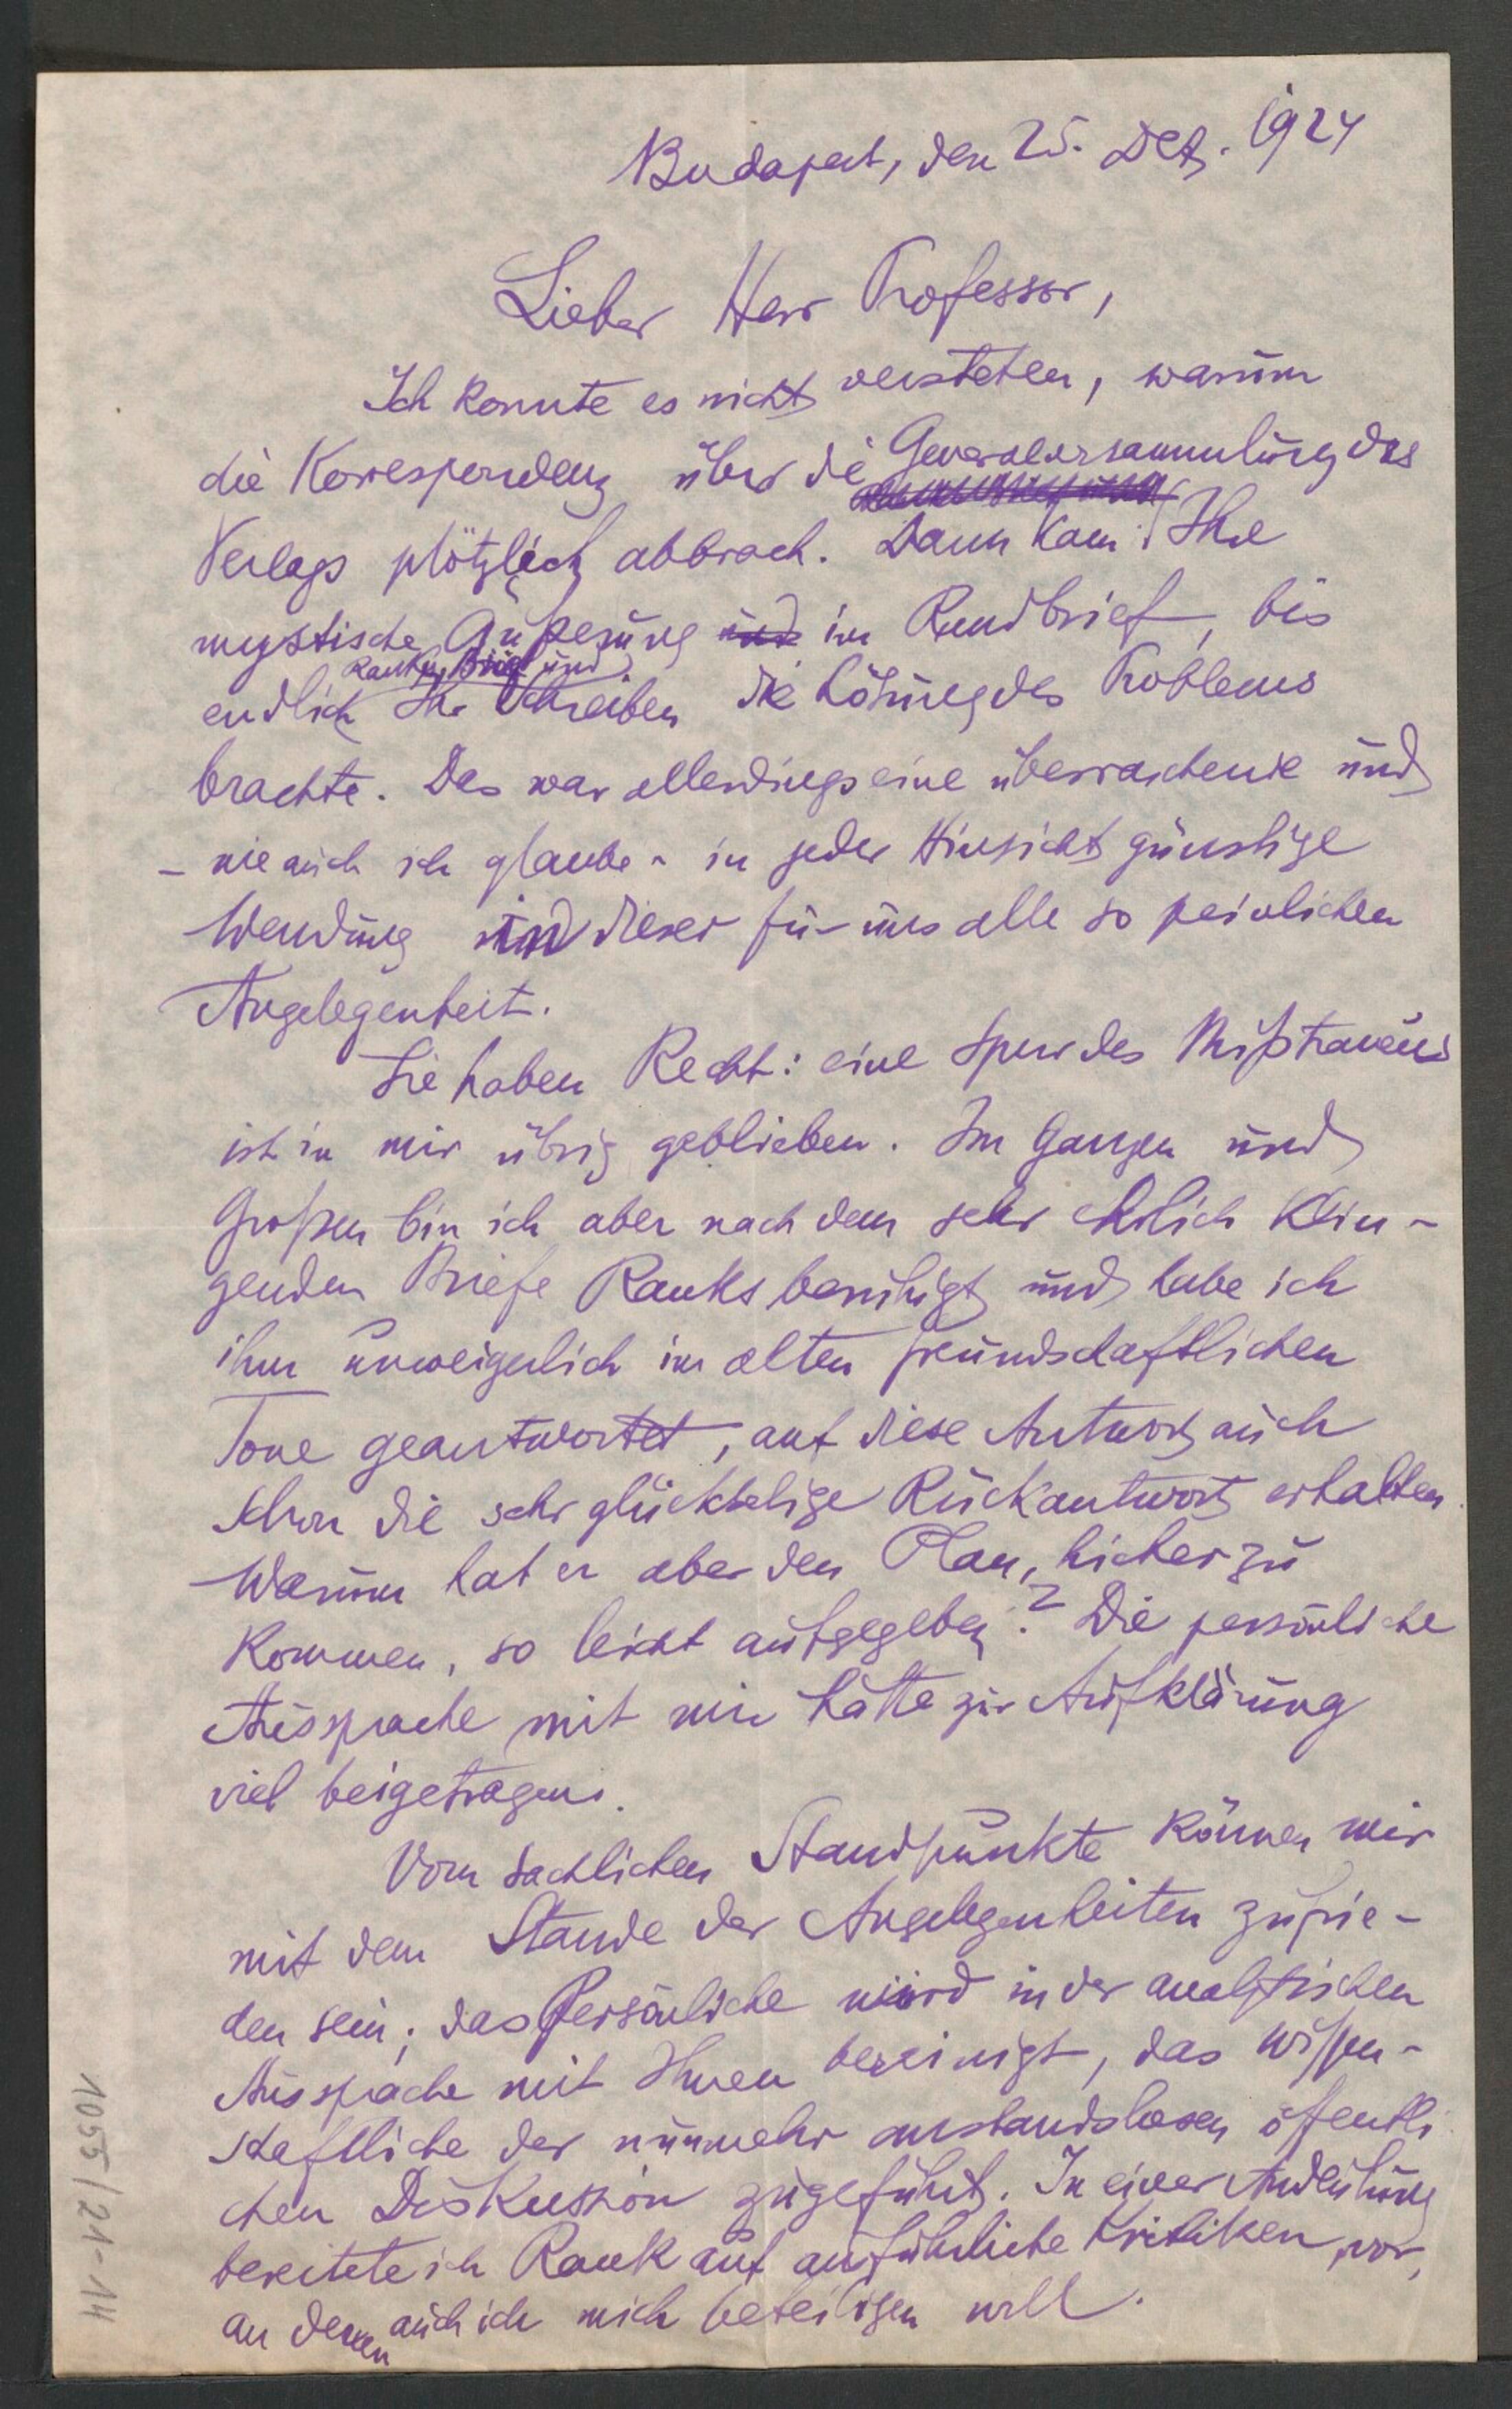 Budapest, den 25. Dez. 1924
Lieber Herr Professor,
Ich konnte es nicht verstehen, warum
die Korrespondenz über die Generalversammlung des
Verlags plötzlich abbrach. Dann kam Ihre
mystische Äußerung und im Rundbrief, bis
Ranks Brief und
endlich Ihr Schreiben die Lösung des Problems
brachte. Das war allerdings eine überraschende und
- wie auch ich glaube - in jeder Hinsicht günstige
Wendung in dieser für uns alle so peinlichen
Angelegenheit.
Sie haben Recht: eine Spur des Mißtrauens
ist in mir übrig geblieben. Im Ganzen und
Großen bin ich aber nach dem sehr ehrlich klin-
genden Briefe Ranks beruhigt und habe ich
ihm unweigerlich im alten freundschaftlichen
Tone geantwortet, auf diese Antwort auch
schon die sehr glückselige Rückantwort erhalten.
Warum hat er aber den Plan, hieher zu
kommen, so leicht aufgegeben? Die persönliche
Aussprache mit mir hätte zur Aufklärung
viel beigetragen.
Vom sachlichen Standpunkte können wir
mit dem Stande der Angelegenheiten zufrie-
den sein; das Persönliche wird in der analytischen
Aussprache mit Ihnen bereinigt, das wissen-
schaftliche der nunmehr anstandslosen öffentli
chen Diskussion zugeführt. In einer Andeutung
bereitete ich Rank auf ausführliche Kritiken vor,
an denen auch ich mich beteiligen will.
1055/21-14